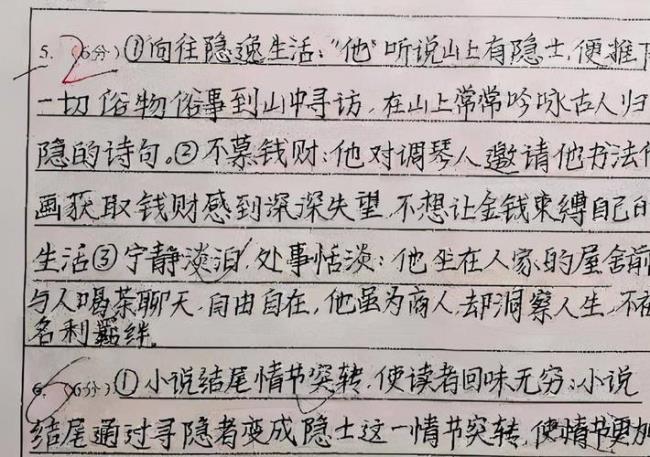 5. 2 (6分)①向往隐逸生活:"他"听说山上有隐士,便推
一切俗物俗事到山中寻访,在山上常常吟咏古人归
隐的诗句。②不慕钱财:他对调琴人邀请他书法
画获取钱财感到深深失望,不想让金钱束缚自己的
生活③宁静淡泊,处事恬淡:他坐在人家的屋舍前
与人喝茶聊天,自由自在,他虽为商人,却洞察人生,不
名利羁绊。
6. (6分)①小说结尾情节突转,使读者回味无穷:小说
结尾通过寻隐者变成隐士这一情节突转,使情节更加